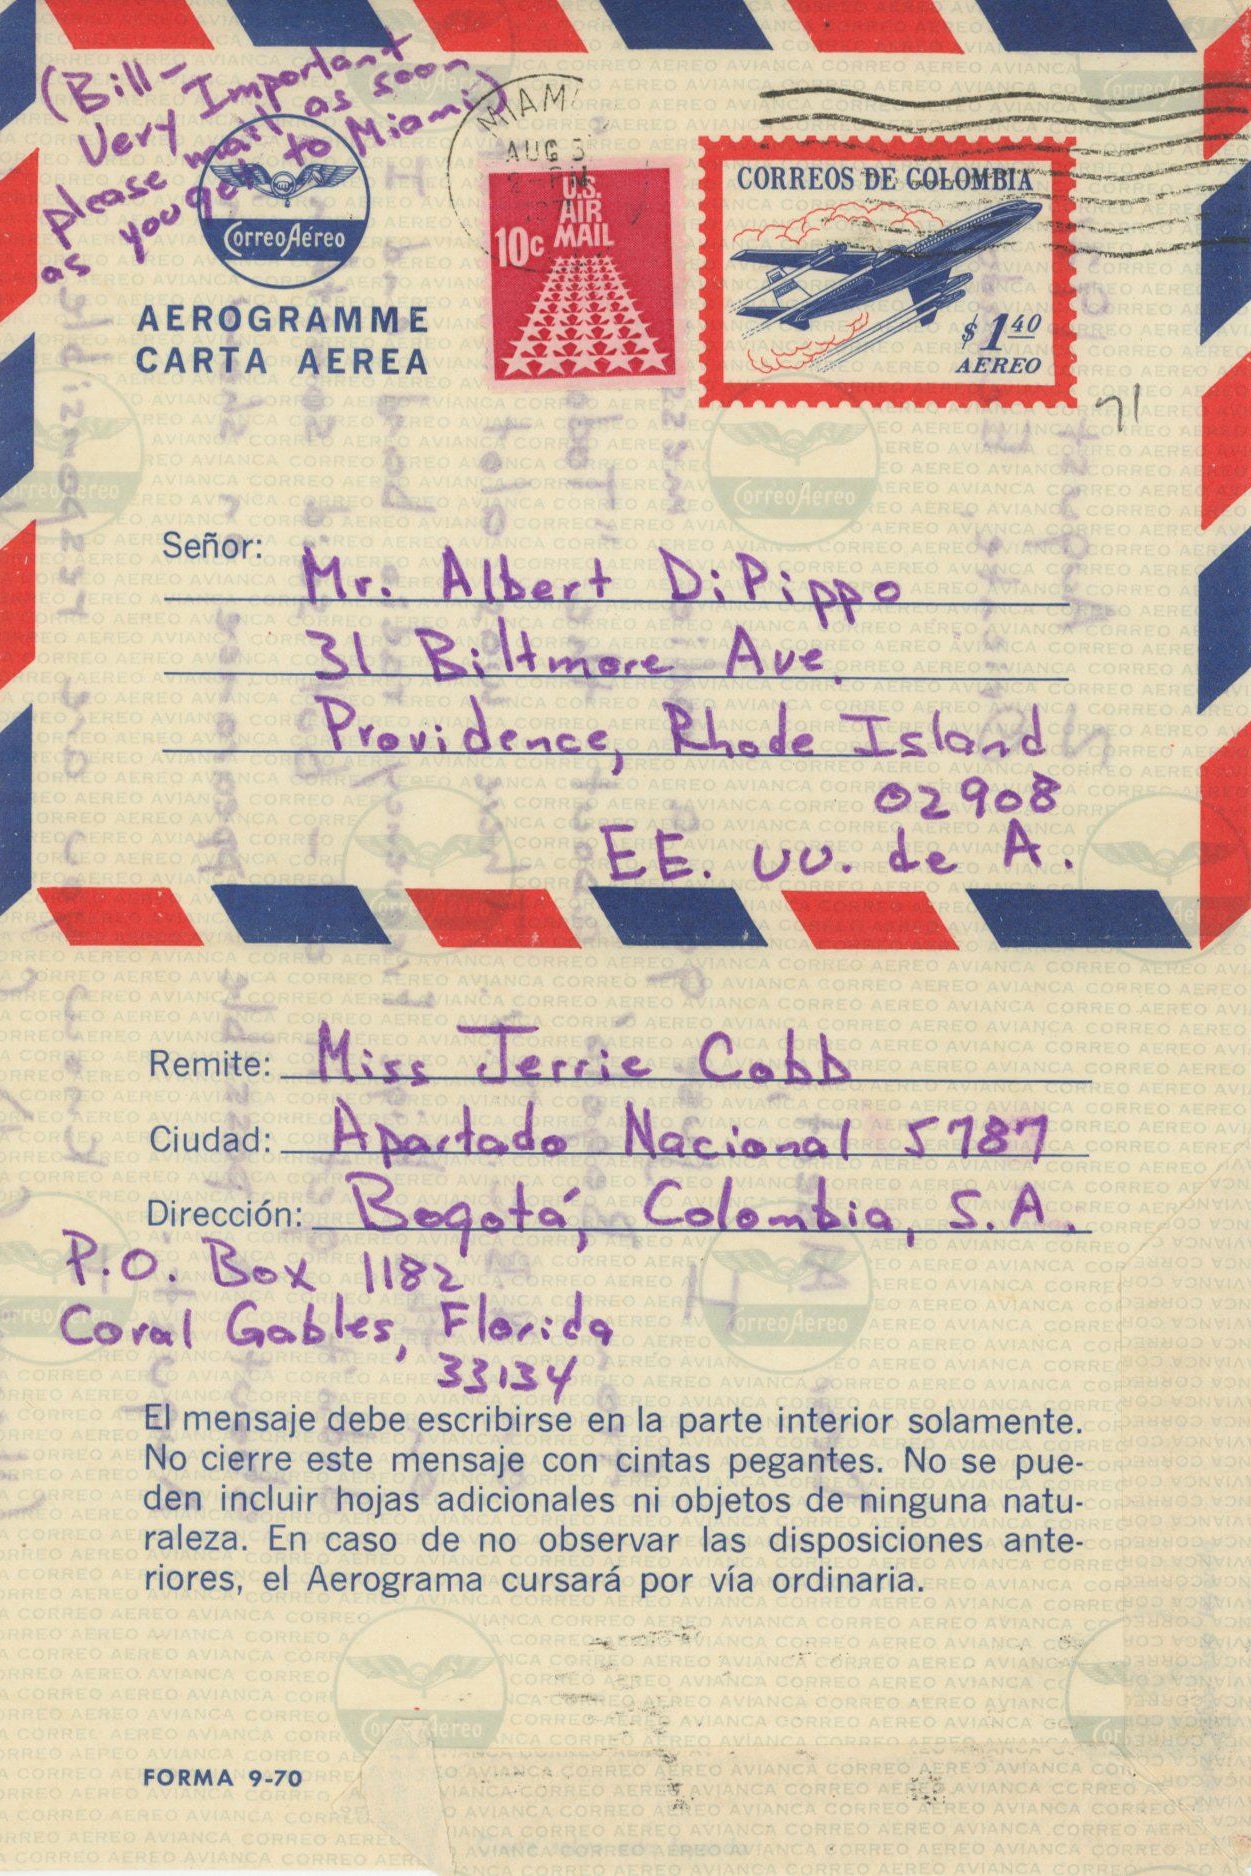 (Bill-
Very Important
please mail as soon
as you get to Miami)
MIAMI
AUG 5
PM
Correo Aéreo
AEROGRAMME
CARTA AEREA
U.S.
AIR
MAIL
10c
CORREOS DE COLOMBIA
$1.40
AEREO
71
Señor: Mr. Albert DiPippo
31 Biltmore Ave.
Providence, Rhode Island
02908
EE. UU. de A.
Remite: Miss Jerrie Cobb
Ciudad: Apartado Nacional 5787
Dirección: Bogotá, Colombia, S.A.
P.O. Box 1182
Coral Gables, Florida
33134
El mensaje debe escribirse en la parte interior solamente.
No cierre este mensaje con cintas pegantes. No se pue-
den incluir hojas adicionales ni objetos de ninguna natu-
raleza. En caso de no observar las disposiciones ante-
riores, el Aerograma cursará por vía ordinaria.
FORMA 9-70